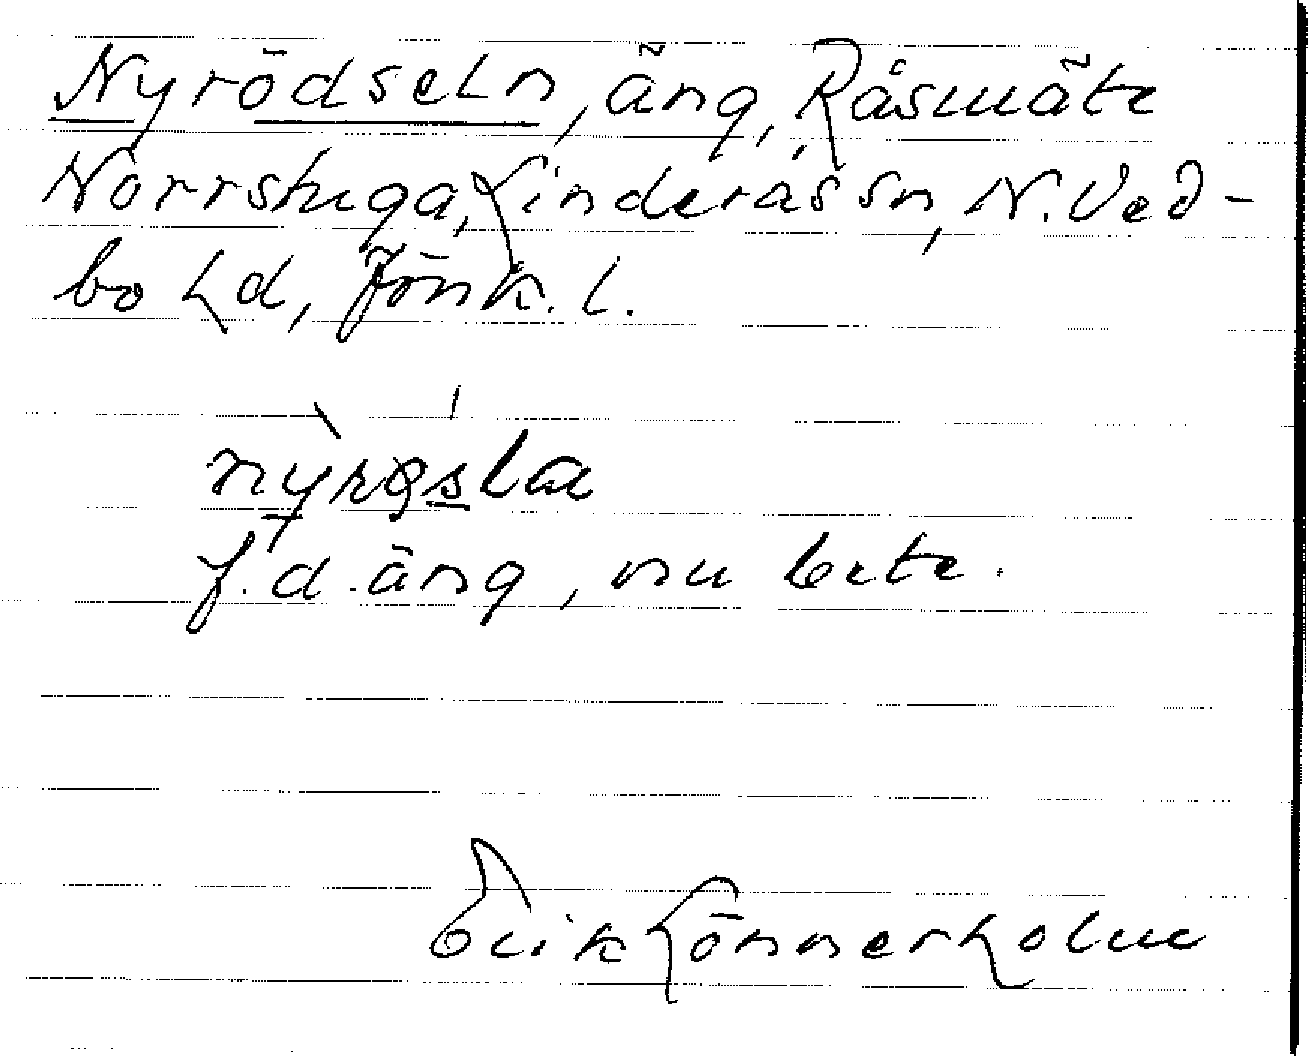 Nyrödseln, äng, Råsmäte
Norrstuga, Linderås sn, N. Ved-
bo hd, Jönk. l.
f.d. äng, nu bete.
Erik Lönnerholm